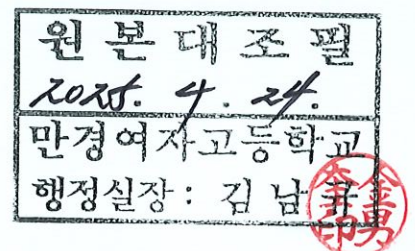 원 본 대 조 필
2025. 4. 24.
만경여자고등학교
행정실장 : 김 남 규
金男奎印